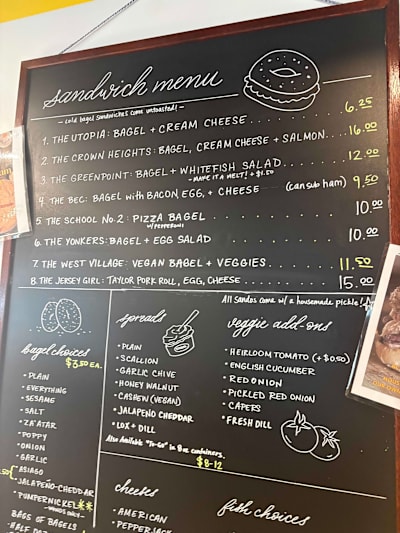 sandwich menu
- cold bagel sandwiches come untoasted! -
1. THE UTOPIA: BAGEL + CREAM CHEESE . . . . . . . . 6.25
2. THE CROWN HEIGHTS: BAGEL, CREAM CHEESE + SALMON . . . . 16.00
3. THE GREENPOINT: BAGEL + WHITEFISH SALAD . . . . . . 12.00
- MAKE IT A MELT! + $1.50
4. THE BEC: BAGEL with BACON, EGG, + CHEESE (can sub ham) 9.50
5. THE SCHOOL No. 2: PIZZA BAGEL . . . . . . . . 10.00
w/ PEPPERONI
6. THE YONKERS: BAGEL + EGG SALAD . . . . . . . . 10.00
7. THE WEST VILLAGE: VEGAN BAGEL + VEGGIES . . . . . . 11.50
8. THE JERSEY GIRL: TAYLOR PORK ROLL, EGG, CHEESE . . . . . . 15.00
All Sandos come w/ a housemade pickle!
bagel choices
$3.50 EA.
• PLAIN
• EVERYTHING
• SESAME
• SALT
• ZA'ATAR
• POPPY
• ONION
• GARLIC
• ASIAGO
• JALAPEÑO-CHEDDAR
• PUMPERNICKEL**
BAGS OF BAGELS
HALF DOZ
spreads
• PLAIN
• SCALLION
• GARLIC CHIVE
• HONEY WALNUT
• CASHEW (VEGAN)
• JALAPEÑO CHEDDAR
• LOX + DILL
Also Available "To-Go" in 8 oz containers.
$8-12
veggie add-ons
• HEIRLOOM TOMATO (+$0.50)
• ENGLISH CUCUMBER
• RED ONION
• PICKLED RED ONION
• CAPERS
• FRESH DILL
cheeses
• AMERICAN
• PEPPERJACK
fish choices